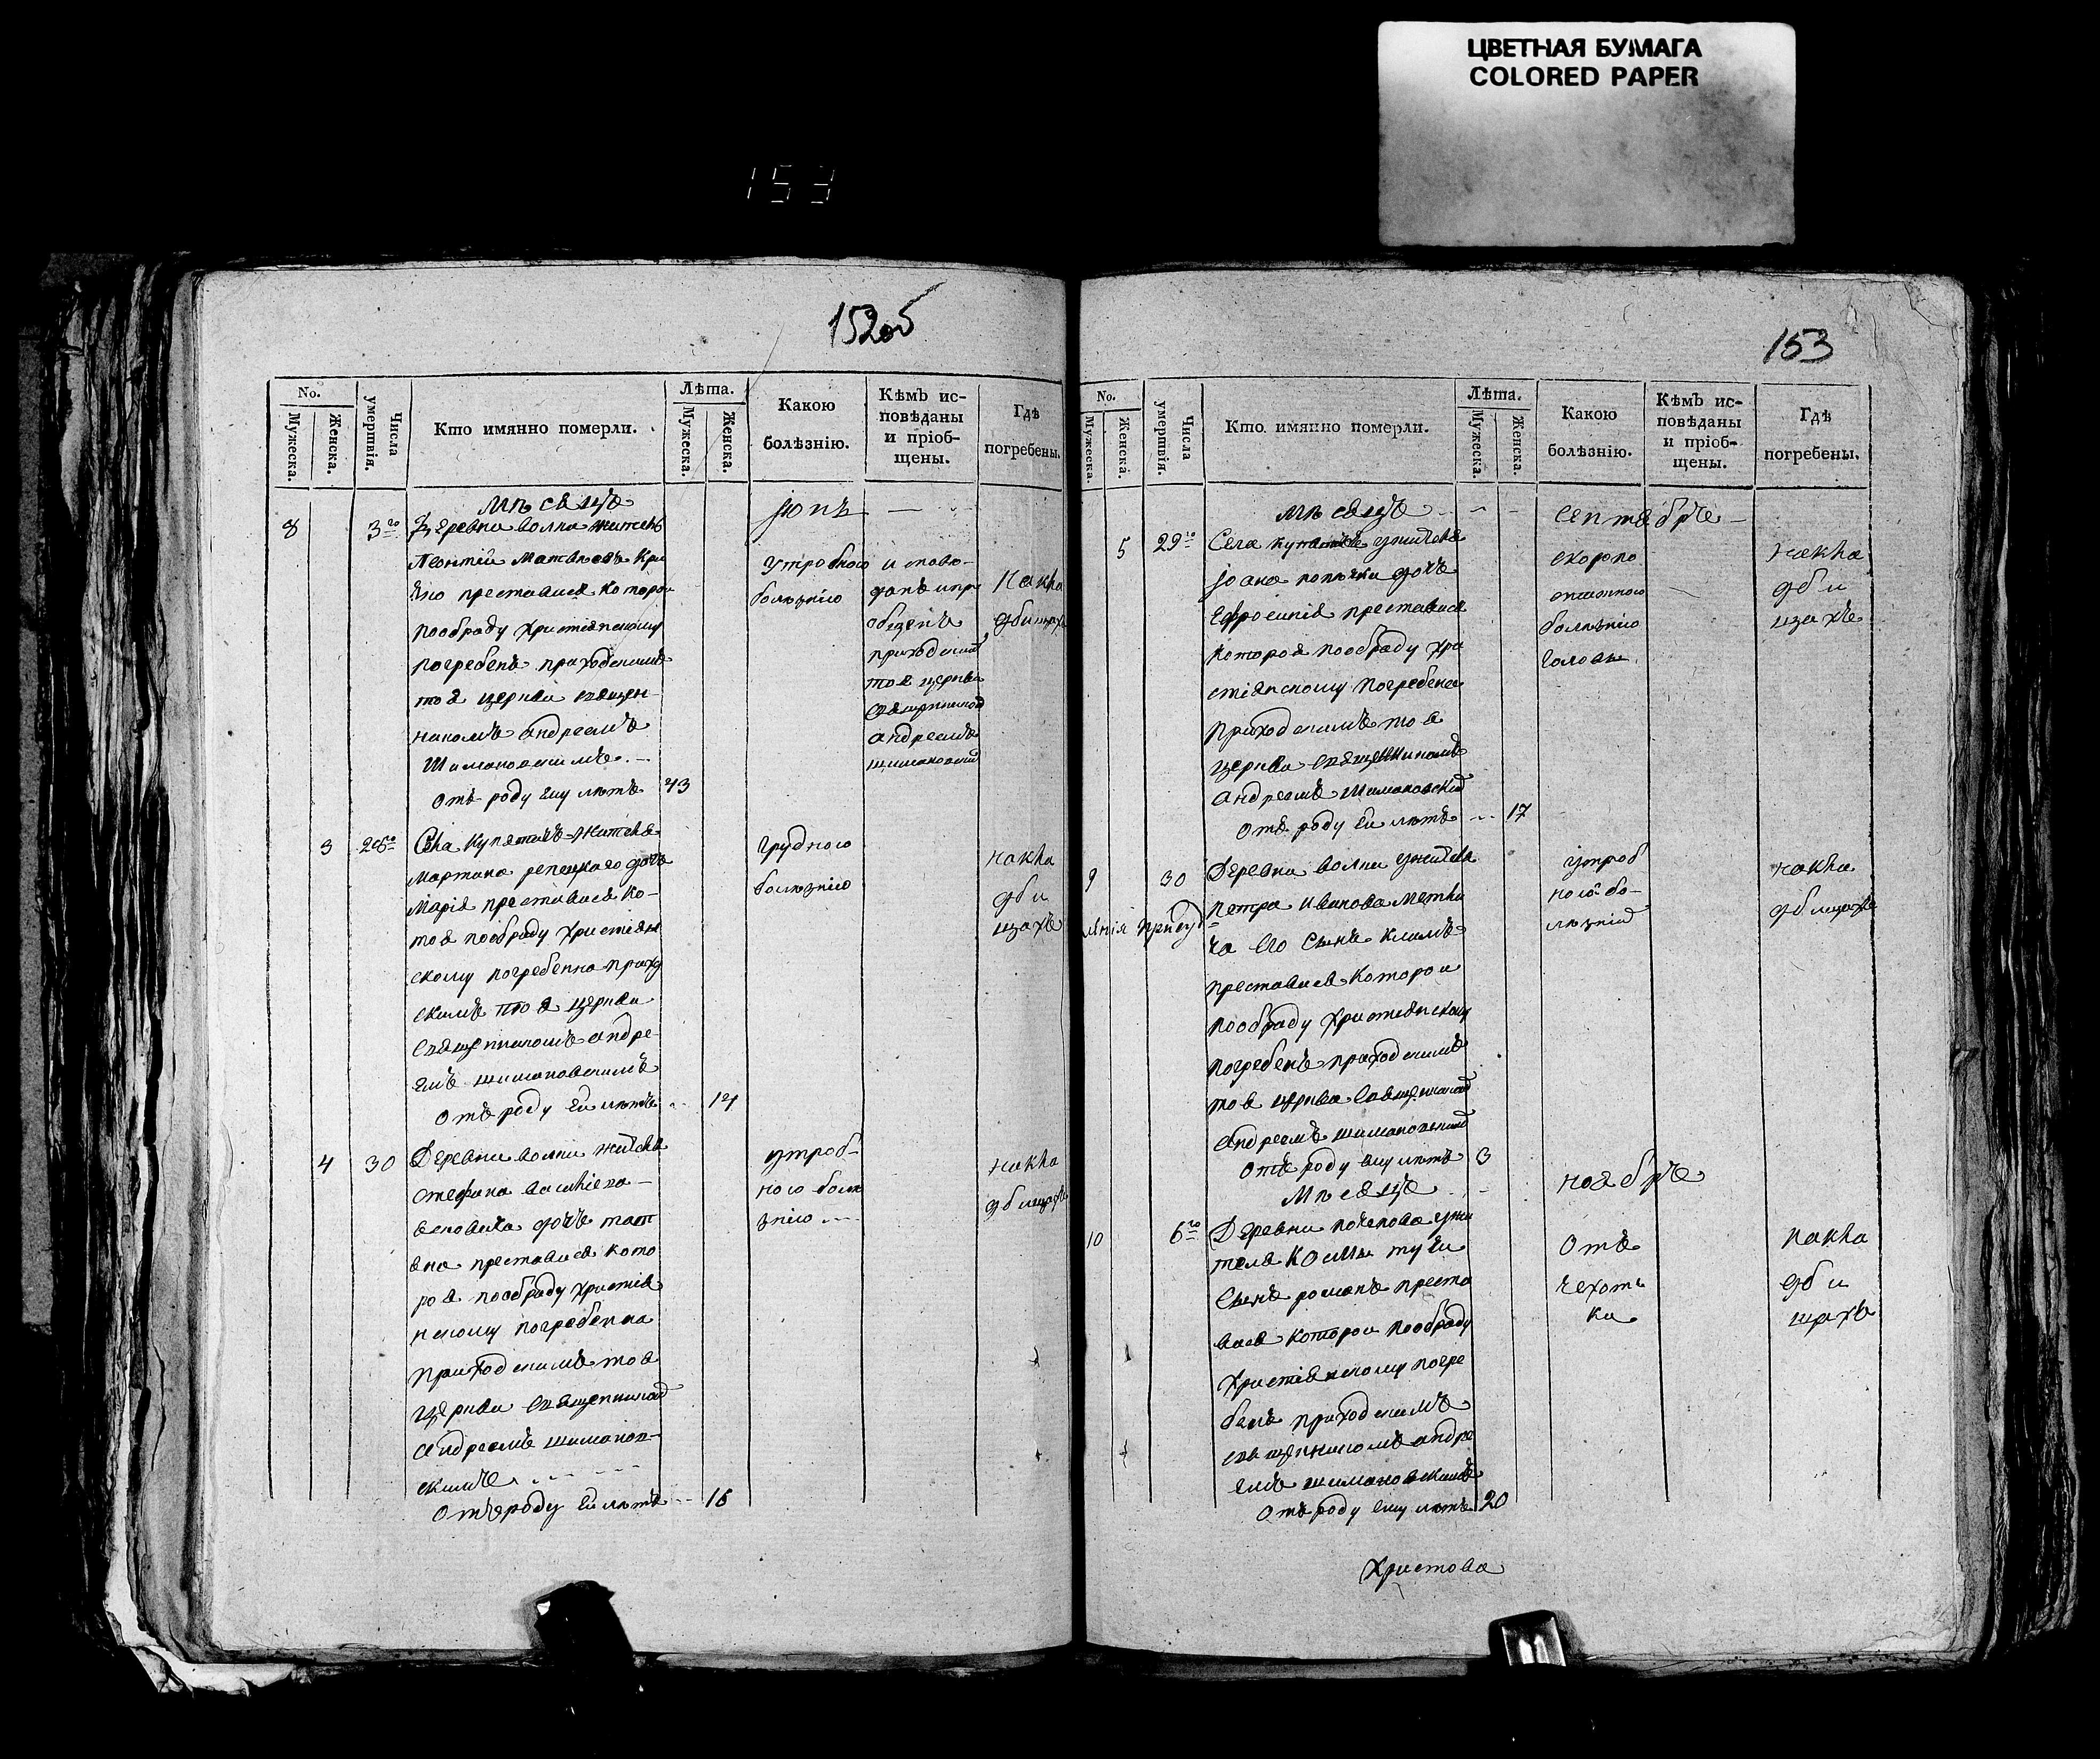 ЦВЕТНАЯ БУМАГА
COLORED PAPER
153
152об
No.
Мужеска.
Женска.
Числа умертвія.
Кто имянно померли.
Лѣта.
Мужеска.
Женска.
Какою болѣзнію.
Кѣмъ исповѣданы и пріобщены.
Гдѣ погребены.
Мѣсяцъ
Іюнь
8
3го
Деревни волки жителъ
Леонтій Матвѣевъ
преставися которои
пообряду християнскому
погребенъ приходскимъ
тоя церкви священ
никомъ андреемъ
Шимановскимъ
отъ роду ему лѣтъ 43
утробною
болезнію
исповѣ
данъ ипрі
общенъ
приходским
тоя церкви
священником
андреемъ
шимановским
Накла
дбищахъ
3
Села Купятичъ жителя
мартина репецкаго дочь
Марія преставися ко
тоя пообряду християн
скому погребенна прихд
скимъ тоя церкви
священникомъ андре
емъ шимановскимъ
отъ роду Ей лѣтъ
грудною
болезнію
накла
дби
щахъ
4
30
Деревни волки жителя
стефана
дочь тат
яна преставися кото
роя пообряду християн
нскому погребенна
приходскимъ тоя
церкви священником
андреемъ шиманов
скимъ
отъ роду ей лѣтъ 16
утроб
ною боле
знію
накла
дбищахъ
153
No.
Мужеска.
Женска.
Числа умертвія.
Кто имянно померли.
Лѣта.
Мужеска.
Женска.
Какою болѣзнію.
Кѣмъ исповѣданы и пріобщены.
Гдѣ погребены.
Мѣсяцъ
септябръ
5
29го
Села жителя
дочь
Ефросинія преставися
котороя пообряду хри
стиянскому погребена
приходскимъ тоя
церкви священникомъ
андреемъ шимановским
отъ роду ей лѣтъ 17
скоропо
болезнію
головы
накла
дби
щахъ
9
30
Деревни волки жителя
петра иванова метки
ча Его сынъ климъ
преставися которои
пообряду християнскому
погребенъ приходскимъ
тоя церкви священником
андреемъ шимановским
отъ роду ему лѣтъ 3
утроб
ною бо
лезнію
накла
дбищахъ
Мѣсяцъ
ноябръ
10
6го
Деревни почапова жи
теля
сынъ романъ преста
вися которои пообряду
християнскому погре
бенъ приходскимъ
священникомъ андре
емъ шимановскимъ
отъ роду ему лѣтъ 20
отъ
чехот
ки
накла
дби
щахъ
Христова